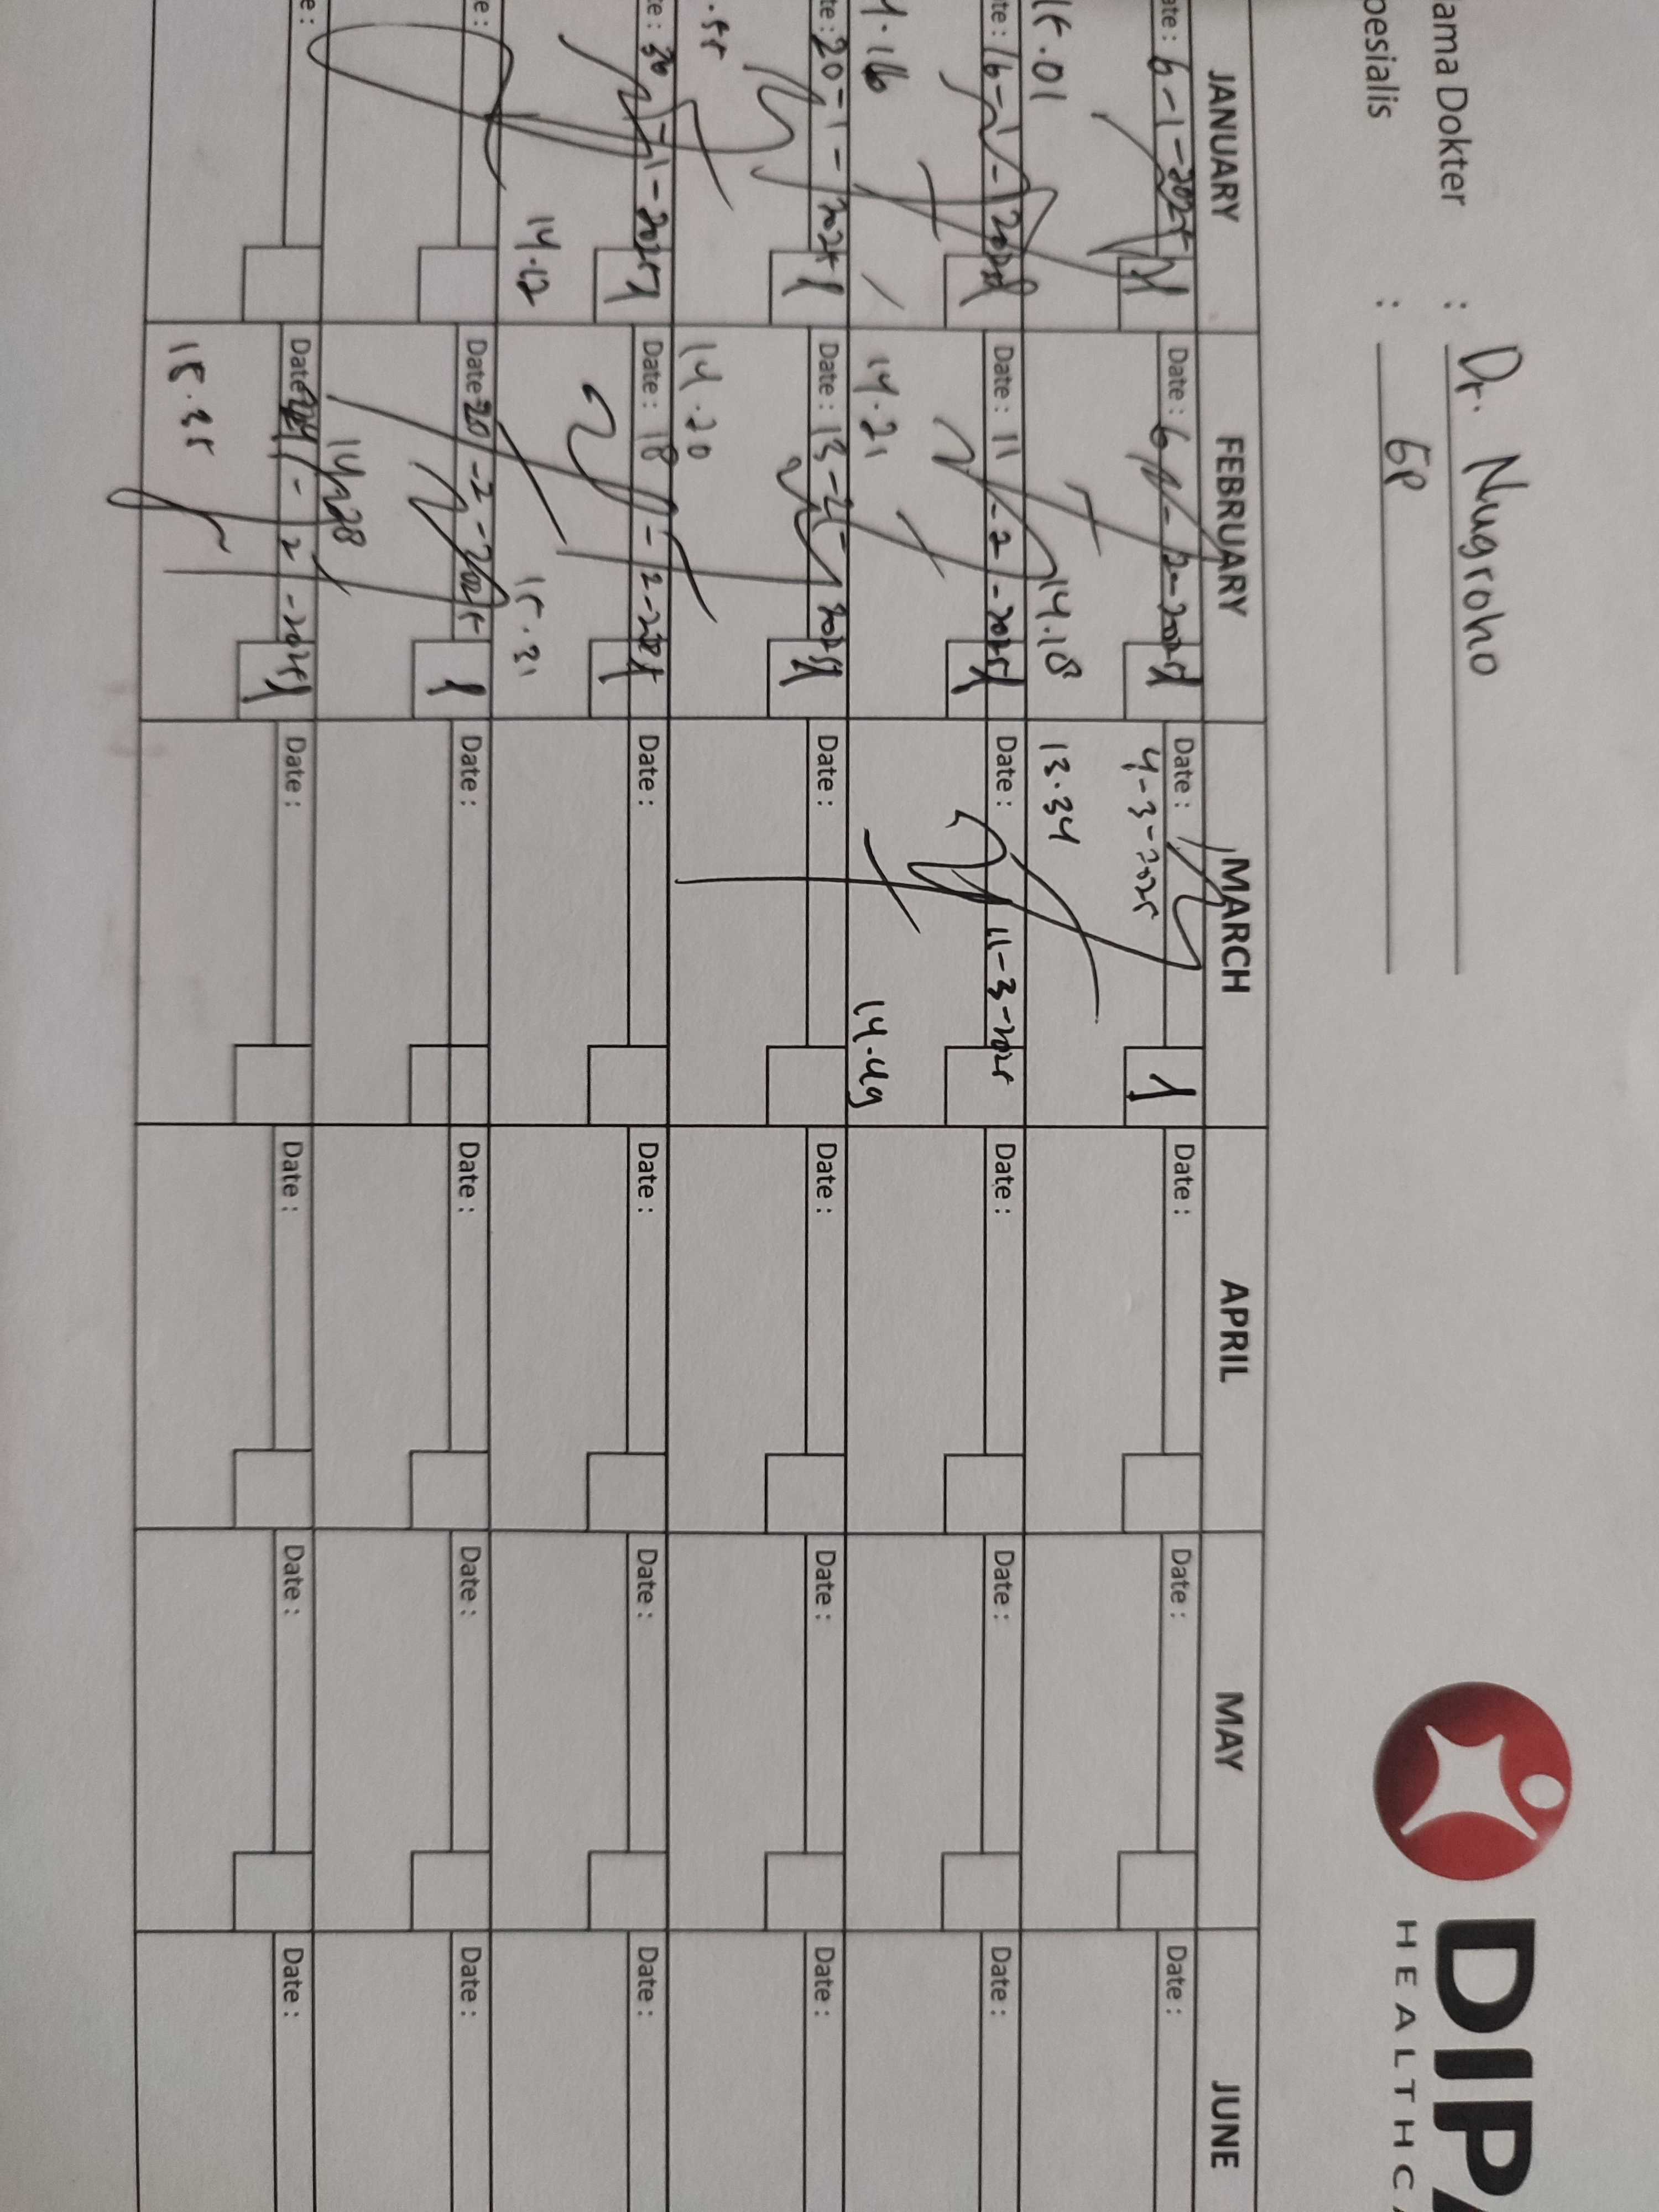 ama Dokter : Dr. Nugroho
pesialis : GP
DIPA
HEALTHCA
JANUARY FEBRUARY MARCH APRIL MAY JUNE
ate : 6-1-2025 1 Date : 6-2-2025 1 Date : Date : Date : Date :
4-3-2025 1
15.01 14.18 13.34
te : 16-1-2025 1 Date : 11-2-2025 1 Date : 11-3-2025 Date : Date : Date :
4.16 14.21 14.49
te : 20-1-2025 1 Date : 13-2-2025 1 Date : Date : Date : Date :
.55 14.20
te : 30-1-2025 1 Date : 18-2-2025 1 Date : Date : Date : Date :
14.12 15.31
e : Date : 20-2-2025 1 Date : Date : Date : Date :
14.28
e : Date : 24-2-2025 1 Date : Date : Date : Date :
15.35